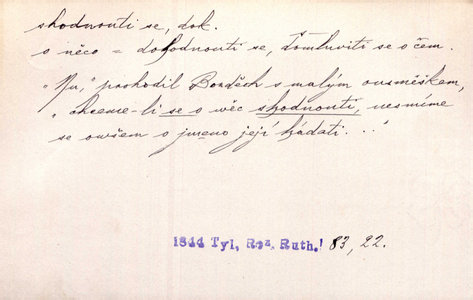 shodnouti se, dok.
o něco = dohodnouti se, domluviti se o čem.
„Nu," prohodil Bozděch s malým ousměškem,
„chceme-li se o věc shodnouti, nesmíme
se owšem o jmeno její hádati..."
1844 Tyl, Roz. Ruth.! 83, 22.